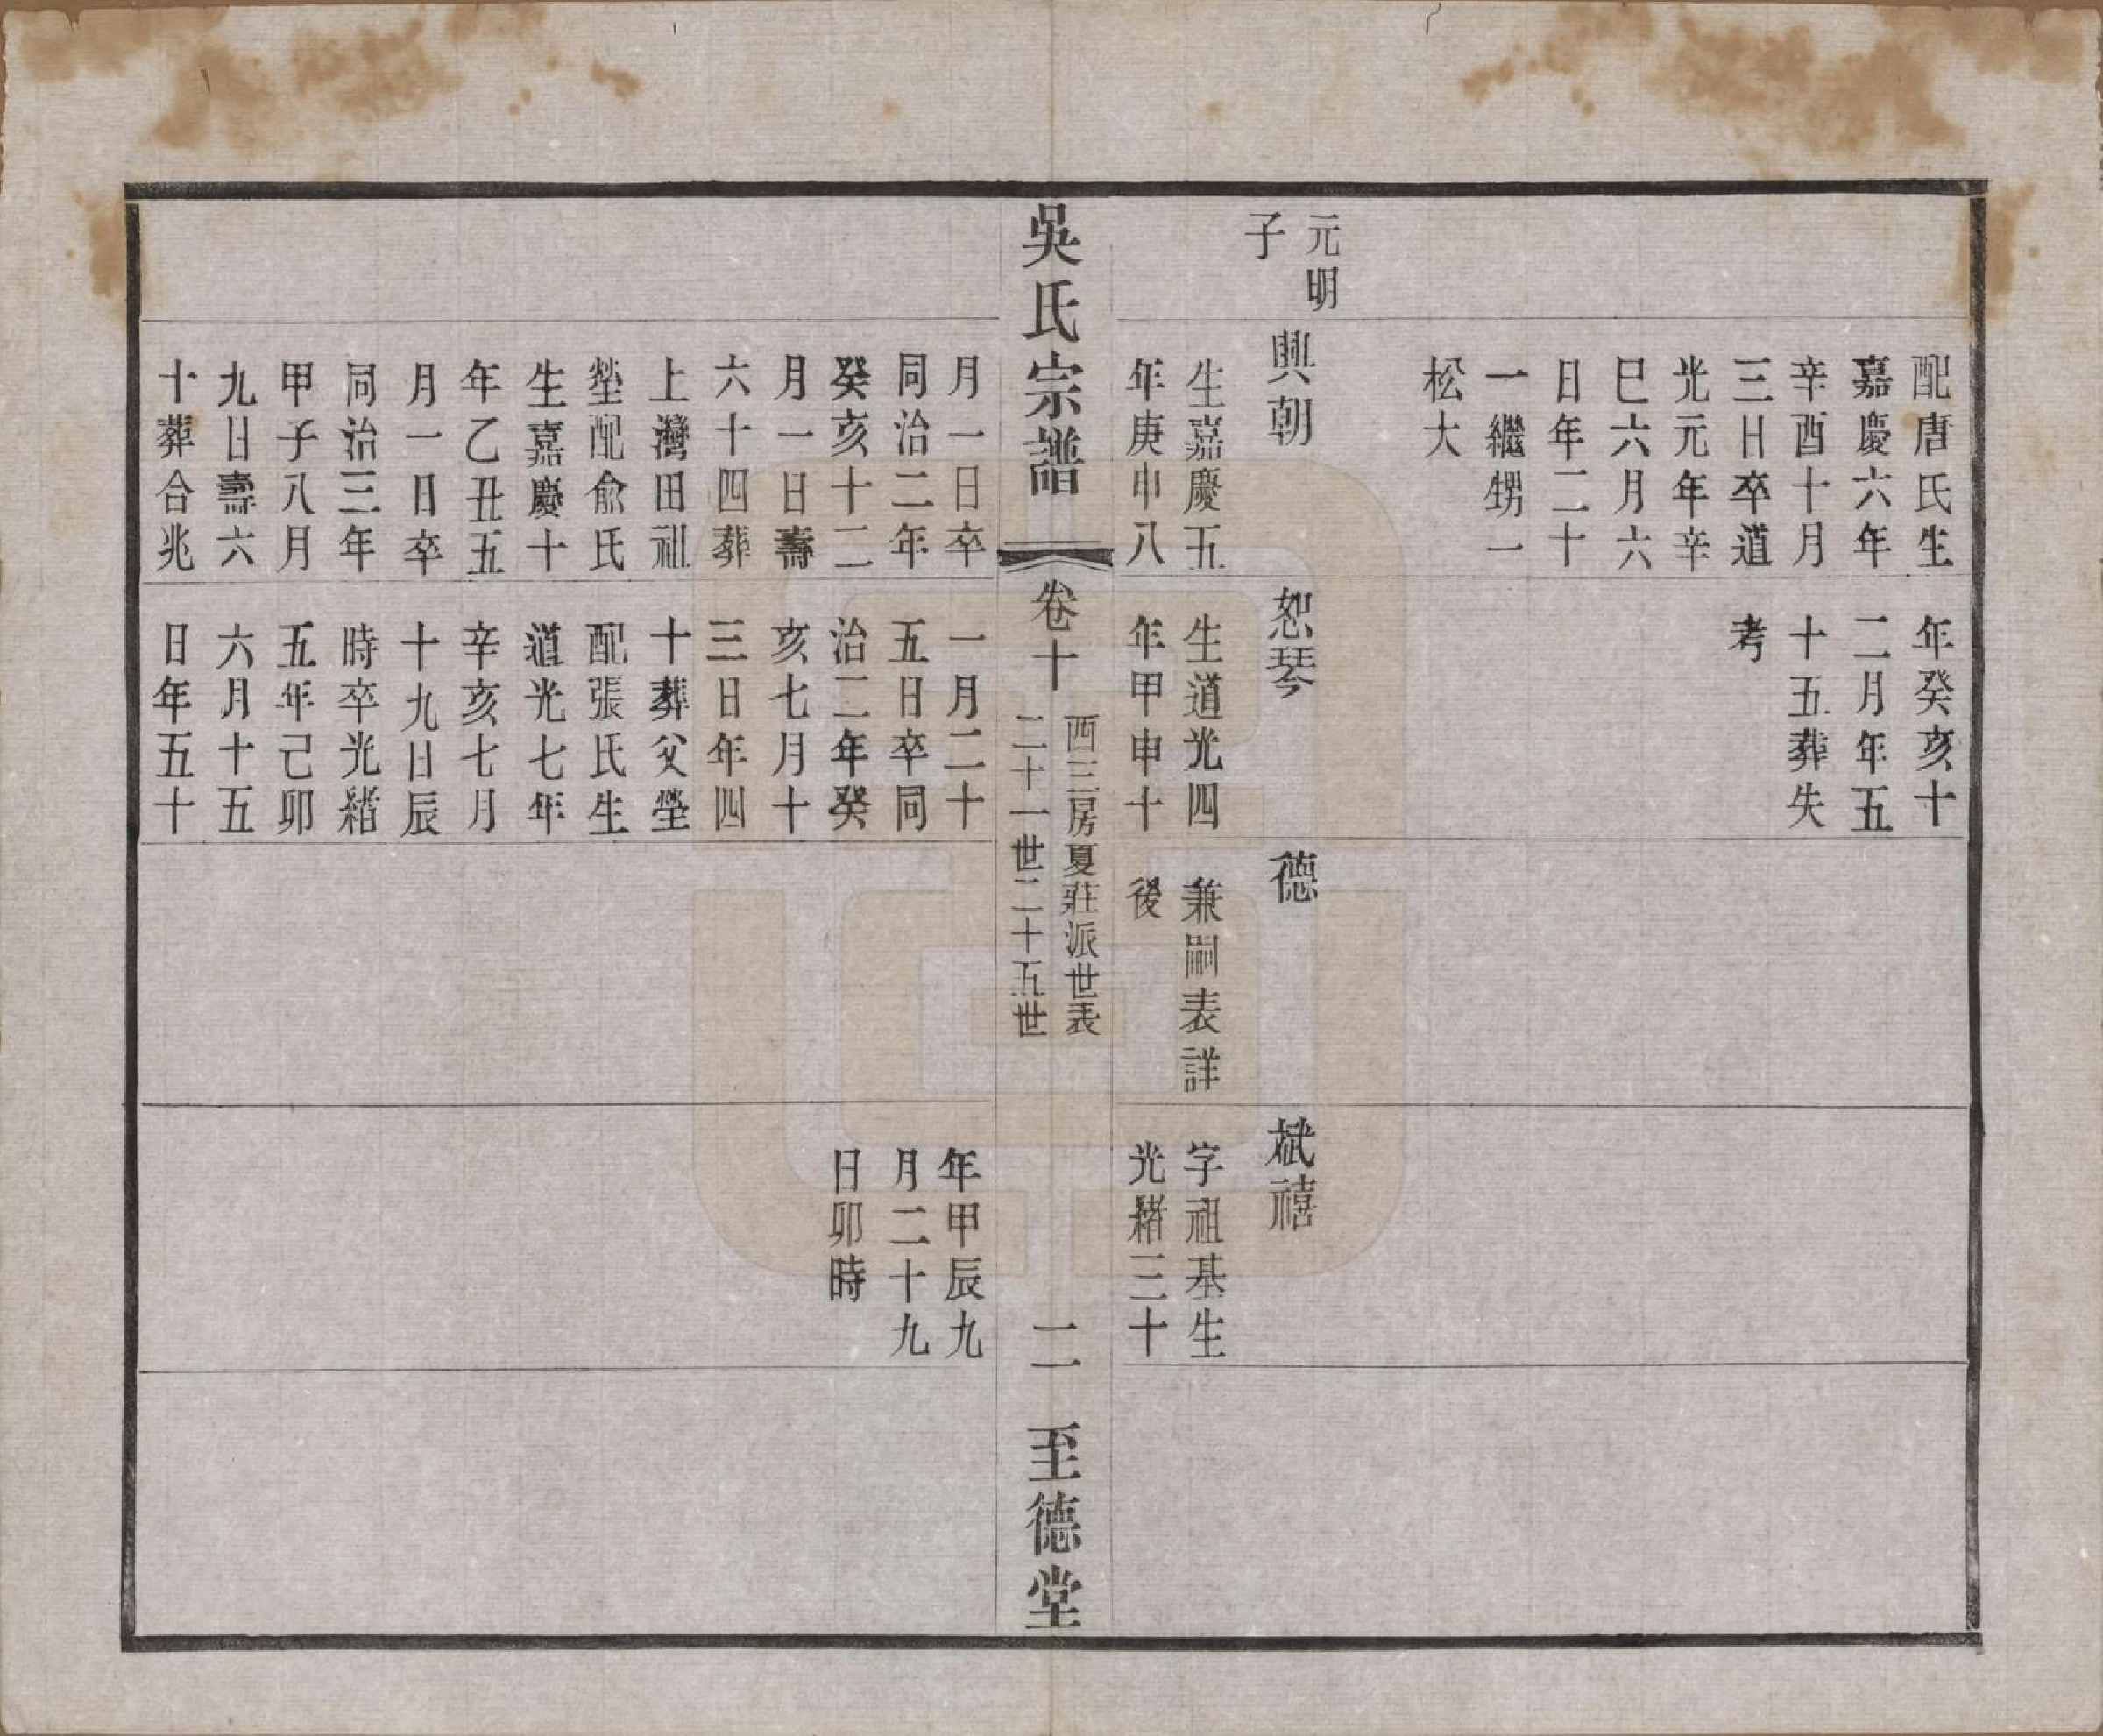 配唐氏生
嘉慶六年
辛酉十月
三日卒道
光元年辛
巳六月六
日年二十
一繼甥一
松大
年癸亥十
二月年五
十五葬失
考
元明
子
興朝
生嘉慶五
年庚申八
恕琴
生道光四
年甲申十
德
兼嗣表詳
後
斌禧
字祖基生
光緒三十
吳氏宗譜
卷十
西三房夏莊派世表
二十一世二十五世
二
至德堂
月一日卒
同治二年
癸亥十二
月一日壽
六十四葬
上灣田祖
塋配俞氏
生嘉慶十
年乙丑五
月一日卒
同治三年
甲子八月
九日壽六
十葬合兆
一月二十
五日卒同
治二年癸
亥七月十
三日年四
十葬父塋
配張氏生
道光七年
辛亥七月
十九日辰
時卒光緒
五年己卯
六月十五
日年五十
年甲辰九
月二十九
日卯時